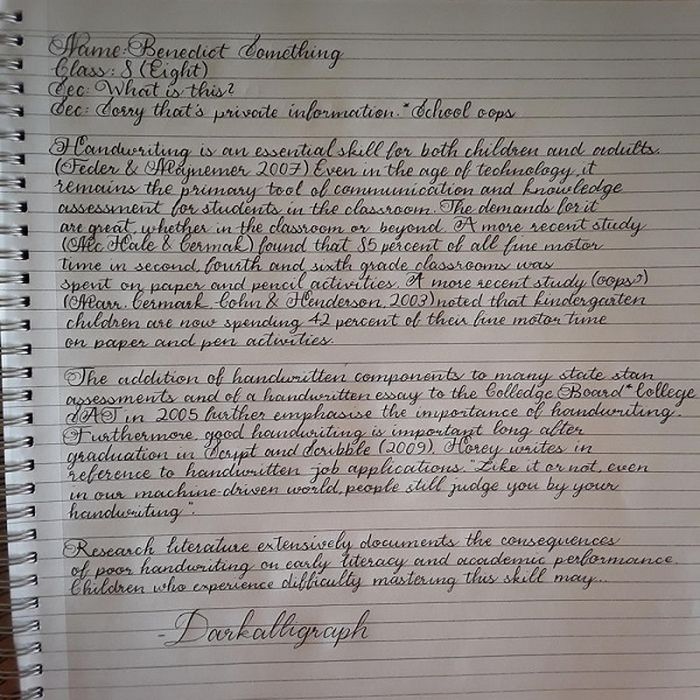 Name: Benedict Something
Class: 8 (Eight)
Sec: What is this?
Sec: Sorry that's private information. *School oops
Handwriting is an essential skill for both children and adults.
(Feder & Majnemer 2007) Even in the age of technology, it
remains the primary tool of communication and knowledge
assessment for students in the classroom. The demands for it
are great, whether in the classroom or beyond. A more recent study
(Mc Hale & Cermak) found that 85 percent of all fine motor
time in second, fourth and sixth grade classrooms was
spent on paper and pencil activities. A more recent study (oops?)
(Marr, Cermark, Cohn & Henderson, 2003) noted that kindergarten
children are now spending 42 percent of their fine motor time
on paper and pen activities.
The addition of handwritten components to many state stan
assessments and of a handwritten essay to the Colledge Board *College
SAT in 2005 further emphasise the importance of handwriting.
Furthermore, good handwriting is important long after
graduation in Script and Scribble (2009), Florey writes in
reference to handwritten job applications, "Like it or not, even
in our machine-driven world, people still judge you by your
handwriting".
Research literature extensively documents the consequences
of poor handwriting on early literacy and academic performance.
Children who experience difficulty mastering this skill may...
-Darkalligraph